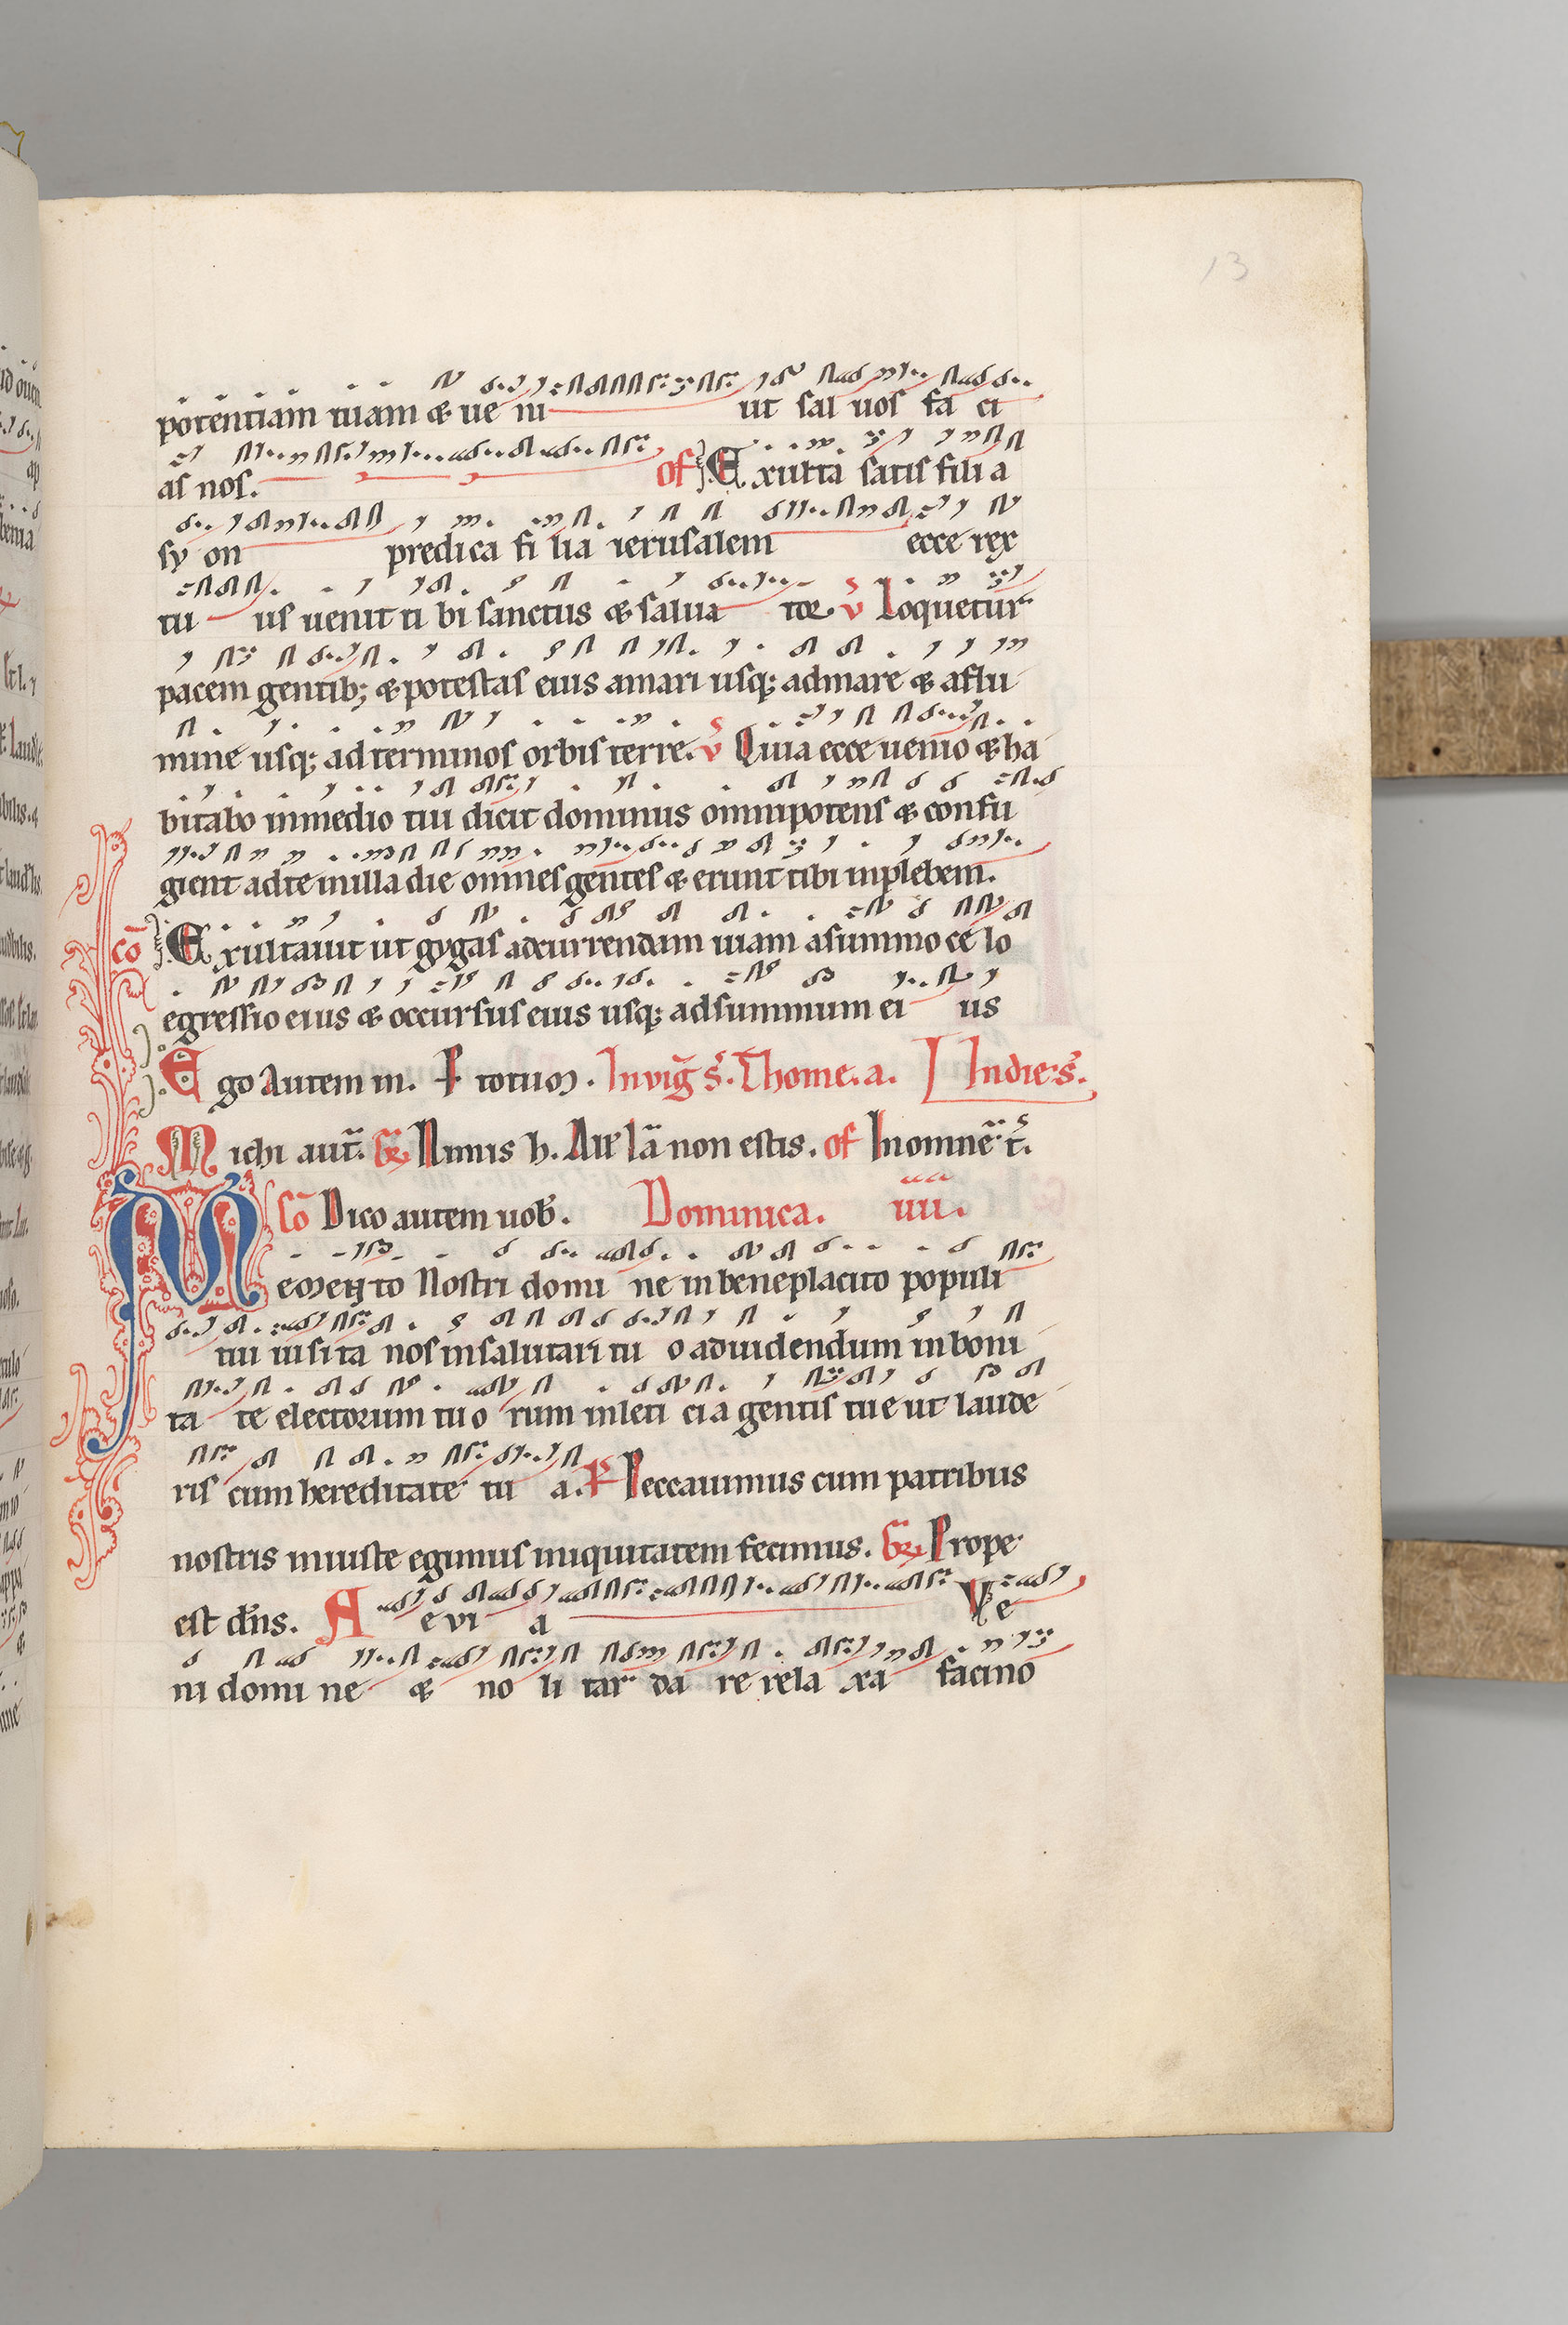 13
potentiam tuam & ue ni ut sal uos fa ci
as nos. of Exulta satis filia
sy on predica fi lia ierusalem ecce rex
tu us uenit ti bi sanctus & salua tor. v Loquetur
pacem gentib; & potestas eius amari usq; admare & aflu
mine usq; ad terminos orbis terre. v Quia ecce uenio & ha
bitabo inmedio tui dicit dominus omnipotens & confu
gient adte inilla die omnes gentes & erunt tibi inplebem.
co Exultauit ut gygas adcurrendam uiam asummo ce lo
egressio eius & occursus eius usq; adsummum ei us
Ego autem in. P totum. Invig̃ s. Thome. a. Indie s.
Michi aut̃. Gr Nimis h. Alł Iã non estis. of Inomnẽ t.
Co Dico autem uob. Dominica. iiii.
Memento Nostri domi ne in beneplacito populi
tui uisita nos insalutari tu o aduidendum in boni
ta te electorum tuo rum inleti cia gentis tue ut laude
ris cum hereditate tu a. P Peccauimus cum patribus
nostris iniuste egimus iniquitatem fecimus. Gr. Prope
est dñs. A evi a Ve
ni domi ne & no li tar da re rela xa facino